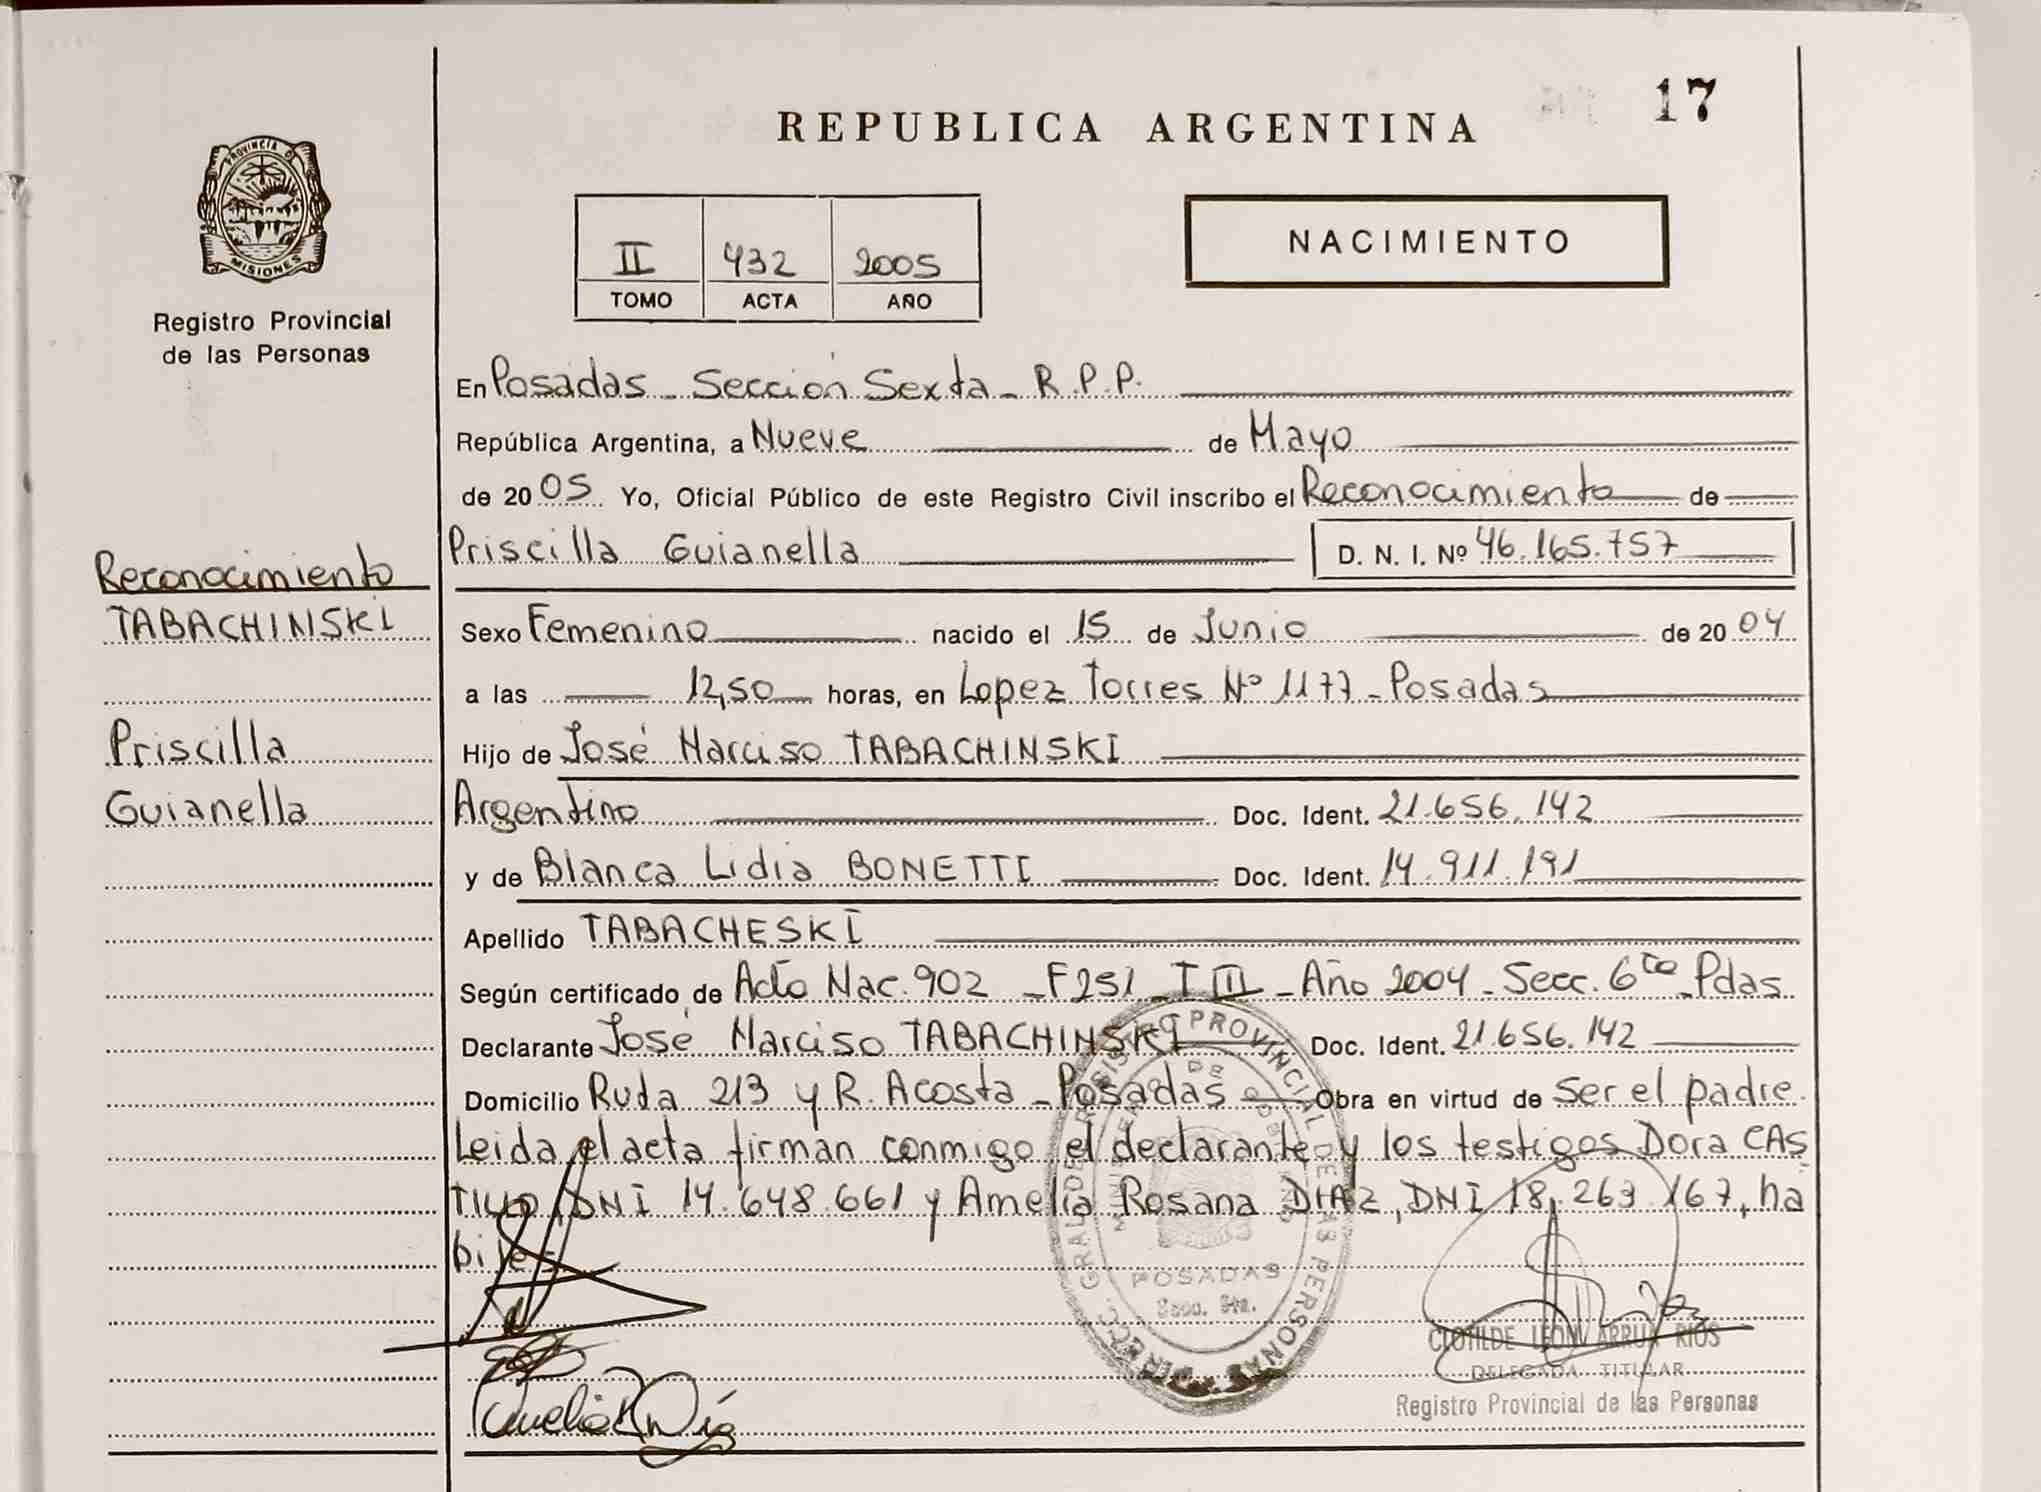 17
REPUBLICA ARGENTINA
PROVINCIA D
MISIONES
Registro Provincial
de las Personas
NACIMIENTO
II 432 2005
TOMO ACTA AÑO
En Posadas - Sección Sexta - R.P.P.
República Argentina, a Nueve de Mayo
de 2005 Yo, Oficial Público de este Registro Civil inscribo el Reconocimiento de
Priscilla Guianella D. N. I. Nº 46.165.757
Reconocimiento
TABACHINSKI
Priscilla
Guianella
Sexo Femenino nacido el 15 de Junio de 2004
a las 12,50 horas, en Lopez Torres Nº 1177 - Posadas
Hijo de José Narciso TABACHINSKI
Argentino Doc. Ident. 21.656.142
y de Blanca Lidia BONETTI Doc. Ident. 14.911.191
Apellido TABACHESKI
Según certificado de Acta Nac. 902 - F251 - T III - Año 2004 - Secc. 6ta - Pdas
Declarante José Narciso TABACHINSKI Doc. Ident. 21.656.142
Domicilio Ruda 213 y R. Acosta - Posadas Obra en virtud de Ser el padre.
Leida el acta firman conmigo el declarante y los testigos Dora CAS
TILLO, DNI 14.648.661 y Amelia Rosana DIAZ, DNI 18.263.167, ha
biles
DIRECC. GRAL. DE REGISTRO PROVINCIAL DE LAS PERSONAS
POSADAS
Secc. 6ta.
CLOTILDE LEON ARRUA RIOS
DELEGADA TITULAR
Registro Provincial de las Personas